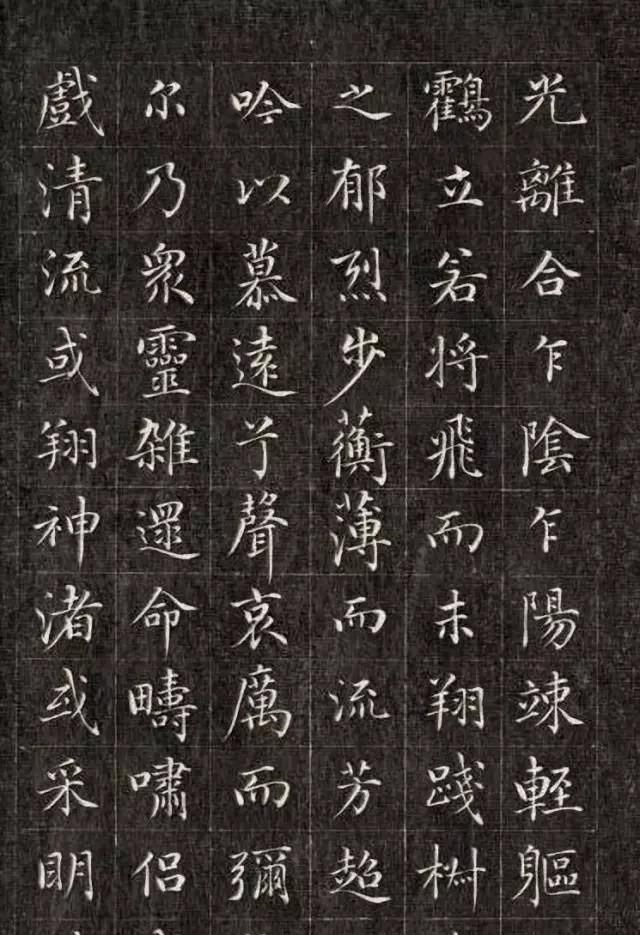 光離合乍陰乍陽竦輕軀
鸖立若将飛而未翔踐椒
之郁烈步蘅薄而流芳超
吟以慕遠兮聲哀厲而彌
尔乃衆靈雑遝命疇嘯侶
戲清流或翔神渚或采明